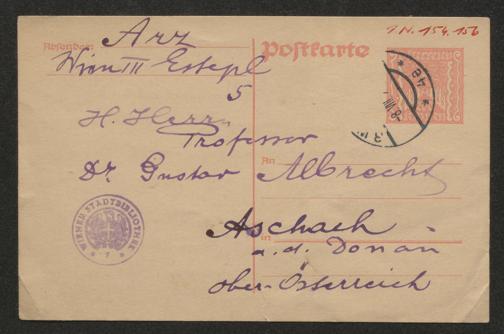 I.N. 154.156
Absender: Arz
Wien III
5
Postkarte
H. Herrn
Professor
An
Dr. Gustav Albrecht
Aschach
in
a. d. Donau
Ober-Österreich
WIENER STADTBIBLIOTHEK